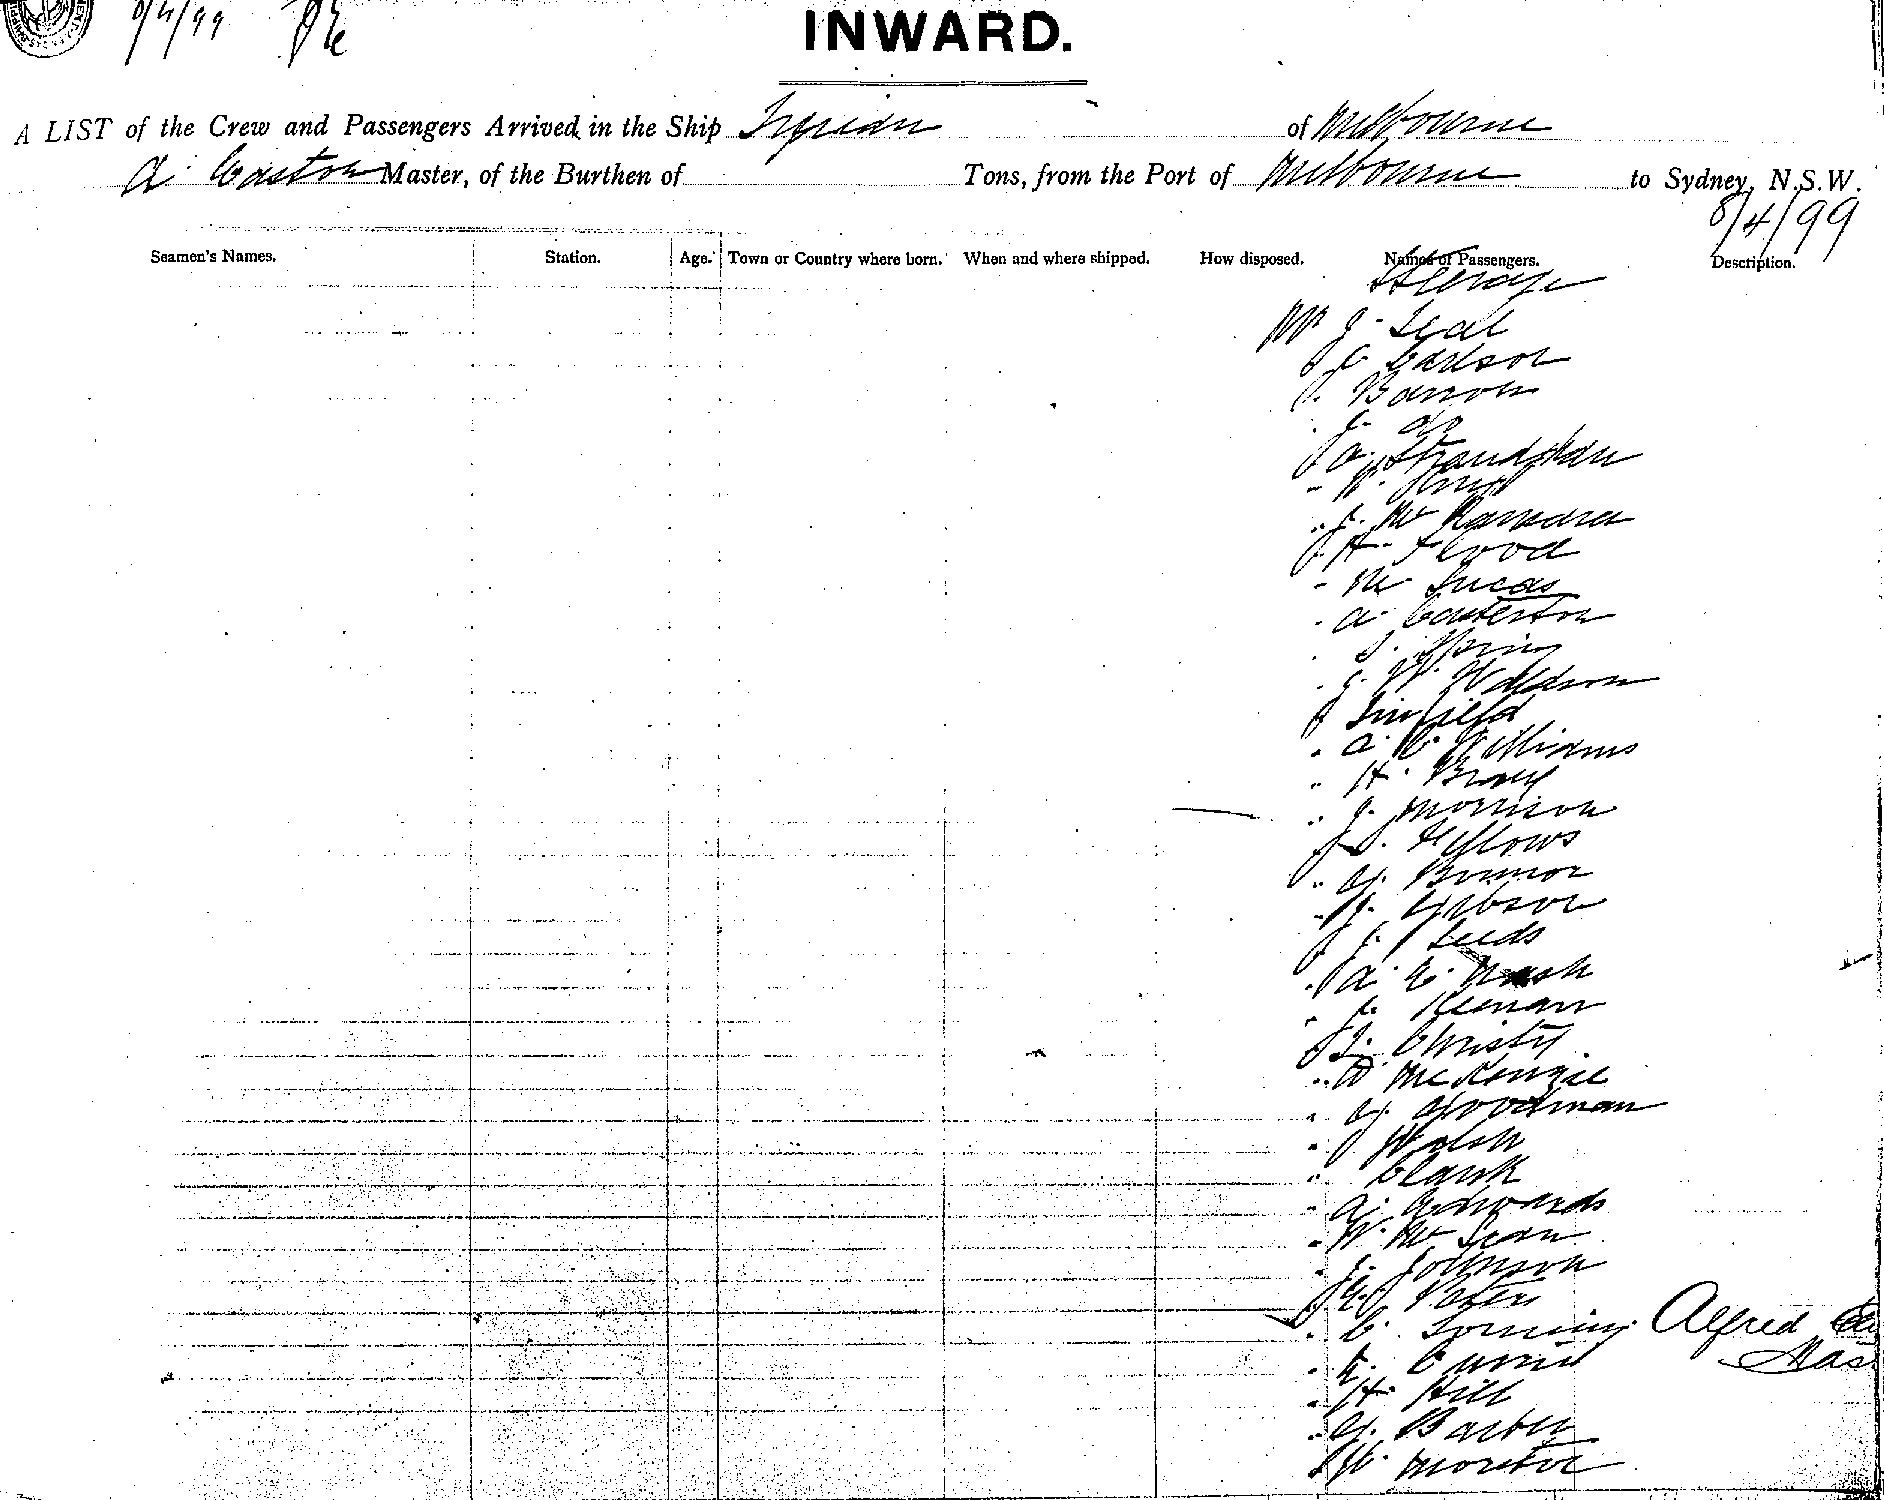 8/4/99
INWARD.
A LIST of the Crew and Passengers Arrived in the Ship Tyrian of Melbourne
A. Caston Master, of the Burthen of Tons, from the Port of Melbourne to Sydney, N.S.W.
8/4/99
Seamen's Names. Station. Age. Town or Country where born. When and where shipped. How disposed. Names of Passengers. Description.
Steerage
Mr J. Seal
C. Carlson
Barron
J. do
A.
W.
J. Mc Namara
H. Flood
M. Lucas
A. Causterton
S. Spring
J. W. Waldron
Linfield
A. C. Williams
H. Bray
J. Morrison
S. Fellows
G. Bonnor
J. Gibson
J. Leeds
A. E. Nash
J. Keenan
J. Christy
D McKenzie
G. Goodman
Walsh
Clark
A. Edwards
W. Mc Lean
J. Johnson
Peters
C. Alfred
K. Currie
H. Hill
G. Barber
W. Morton